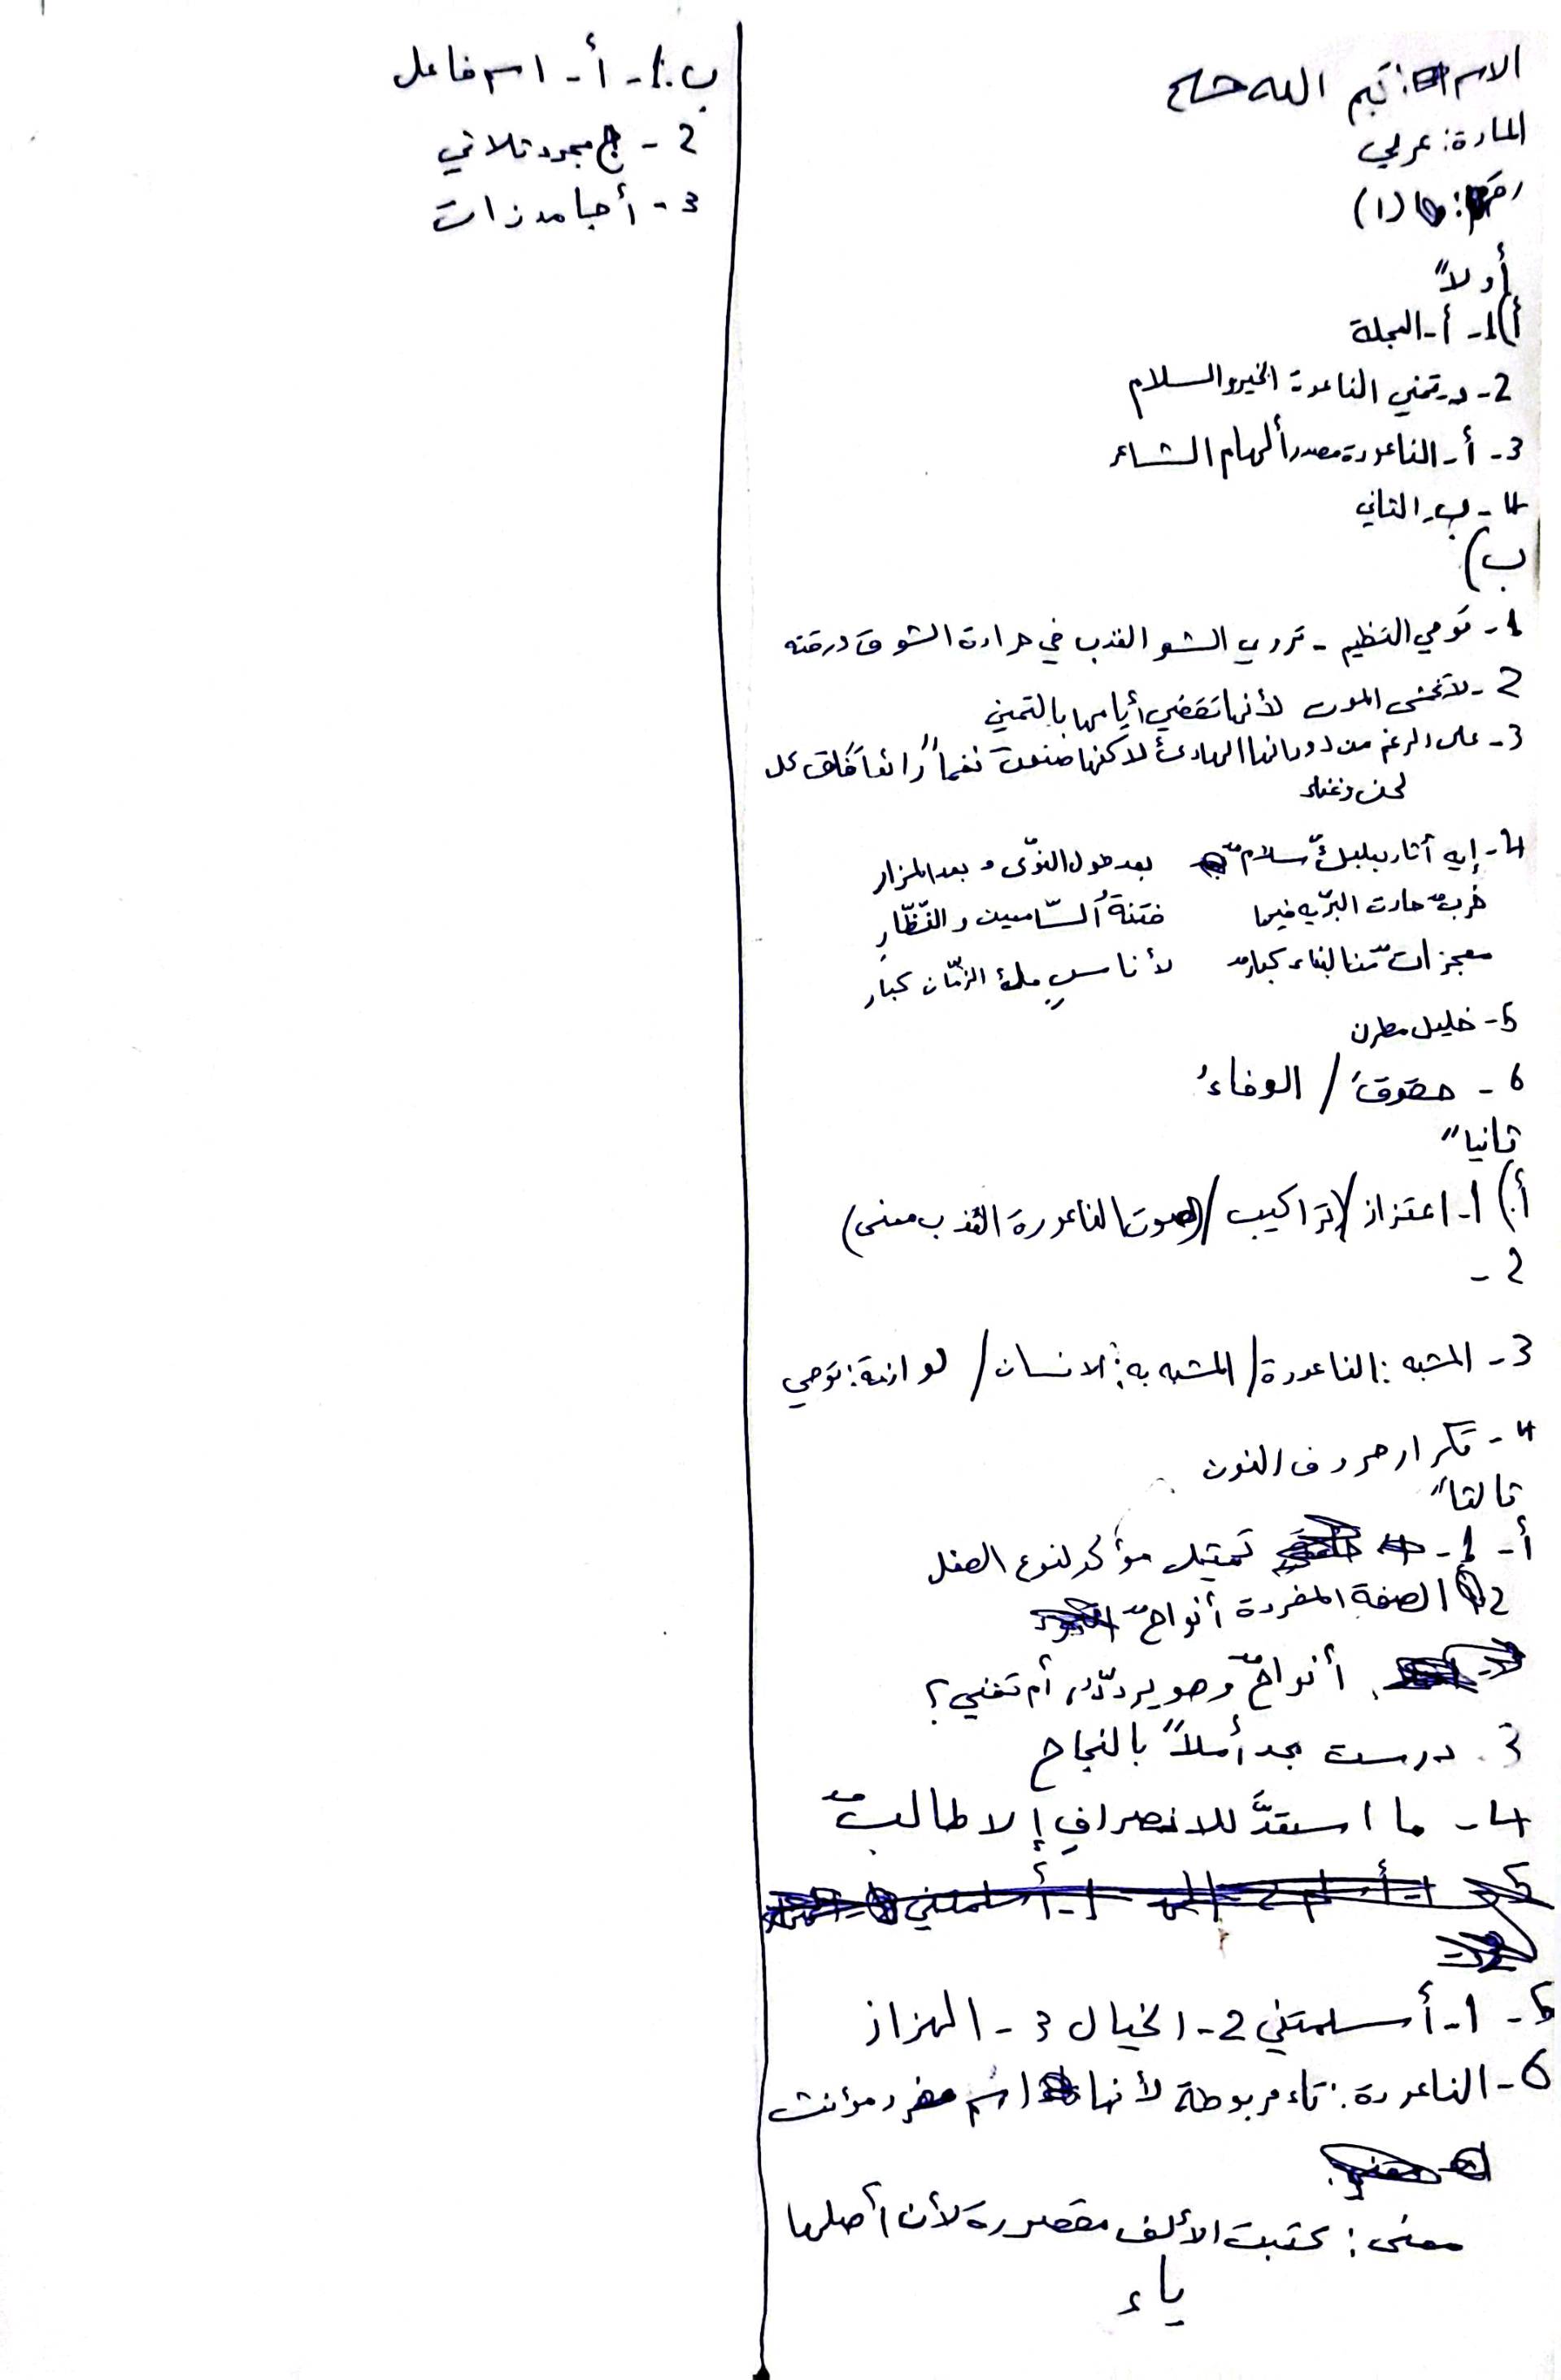 الاسم: تيم الله حاج
المادة: عربي
رقم: (1)
أولاً
أ) 1- أ- العجلة
2- د- تمني الناعورة الخير والسلام
3- أ- الناعورة مصدر ألهام الشاعر
4- ب- الثاني
ب)
1- توحي النظيم - تروي الشعر العذب في حرارة الشوق ورقته
2- لا تخشى الموت لأنها تقضي أيامها بالتمني
3- على الرغم من دورانها الهادئ لاكنها صنعت نغماً رائعاً فاق كل
لحن وغناء
4- إيه أثار بعلبكّ سلامٌ بعد طول النوّى وبعد المزار
خربٌ حارت البريّه فيها فتنةُ السّامعين والنّظّارِ
معجزاتٌ منا لبناء كبارٌ لأناسٍ ملئ الزمّان كبار
5- خليل مطرن
6- حقوقَ / الوفاءُ
ثانياً
أ) 1- اعتزاز / تراكيب / (صوت الناعورة العذب معنى)
2-
3- المشبه: الناعورة / المشبه به: الانسان / لوازمة: توحي
4- تكرار حروف النون
ثالثاً
أ- 1- تمتيل مؤكد لنوع الفعل
2 الصفة المفردة أنواحٌ
أنواحٌ وهو يردّد، أم تغني؟
3. درست بجد أملاً بالنجاح
4- ما استعدَّ للانصرافِ إلا طالبٌ
5- 1- أسلمتني 2- الخيال 3- الهزاز
6- الناعورة: تاء مربوطة لأنها اسم مفرد مؤنث
معنى: كتبت الألف مقصورة لأن أصلها
ياء
ب: 1- أ- اسم فاعل
2- ج مجرد ثلاثي
3- أ جامد ذات